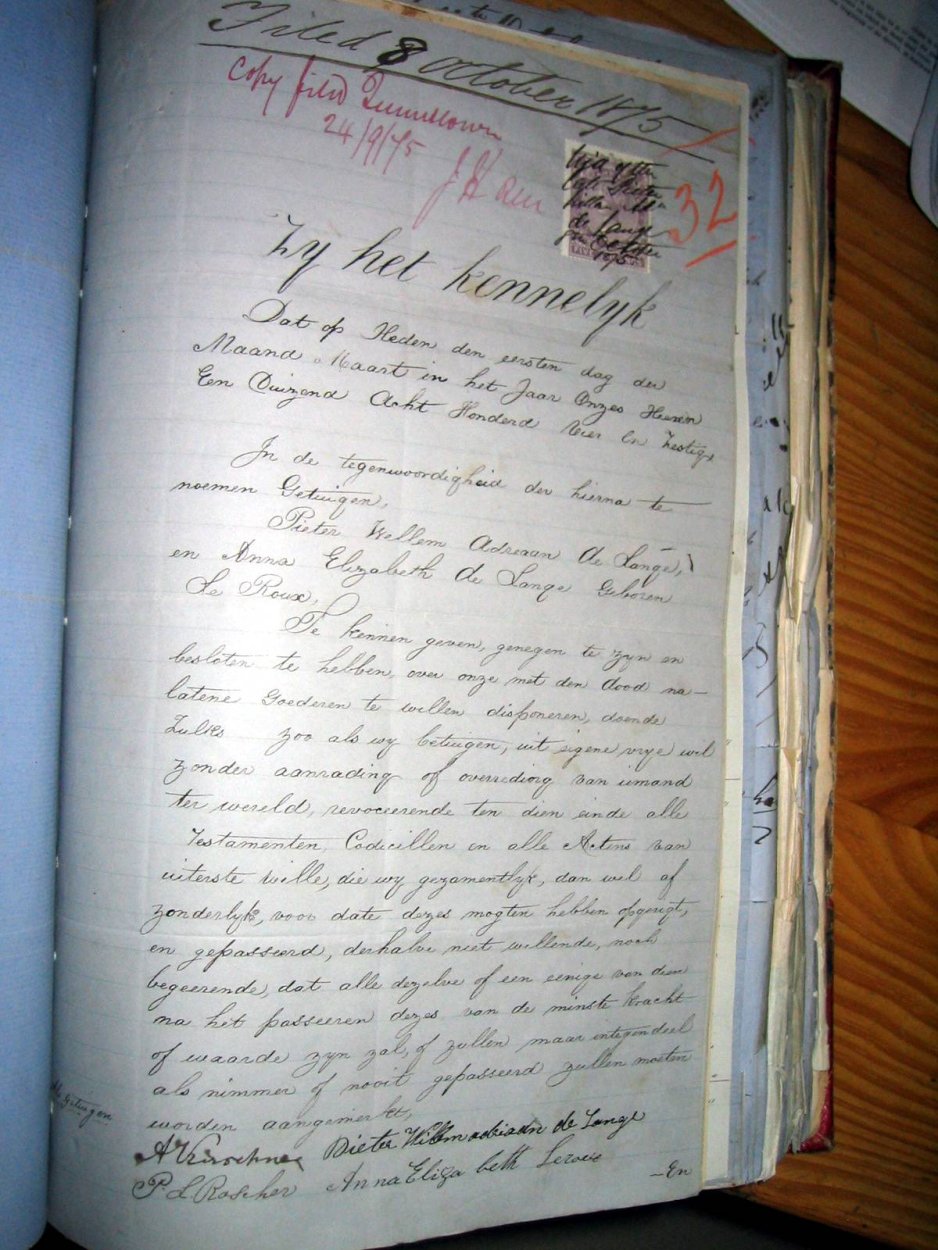 Filed 8 October 1875
Copy filed Queenstown
24/9/75
32
Zy het kennelyk
Dat op Heden den eersten dag der
Maand Maart in het Jaar Onzes Heeren
Een Duizend Acht Honderd Vier En Zestig
In de tegenwoordigheid der hierna te
noemen Getuigen,
Pieter Willem Adriaan de Lange,
en Anna Elizabeth de Lange Geboren
Le Roux,
Te kennen geven, genegen te zyn en
besloten te hebben, over onze met den dood na-
latene Goederen te willen disponeren, doende
Zulks zoo als wy betuigen, uit eigene vrye wil
zonder aanrading of overreding van iemand
ter wereld, revoceerende ten dien einde alle
Testamenten, Codicillen en alle Actens van
uiterste wille, die wy gezamentlyk, dan wel af
zonderlyk, voor date dezes mogten hebben opgerigt,
en gepasseerd, derhalve niet willende, noch
begeerende, dat alle dezelve of een eenige van dien
na het passeeren dezes, van de minste kracht
of waarde zyn zal, of zullen maar integendeel
als nimmer of nooit gepasseerd zullen moeten
worden aangemerkt,
Als Getuigen
Pieter Willem adriaan de Lange
P. L Roscher Anna Eliza beth Leroux
-En